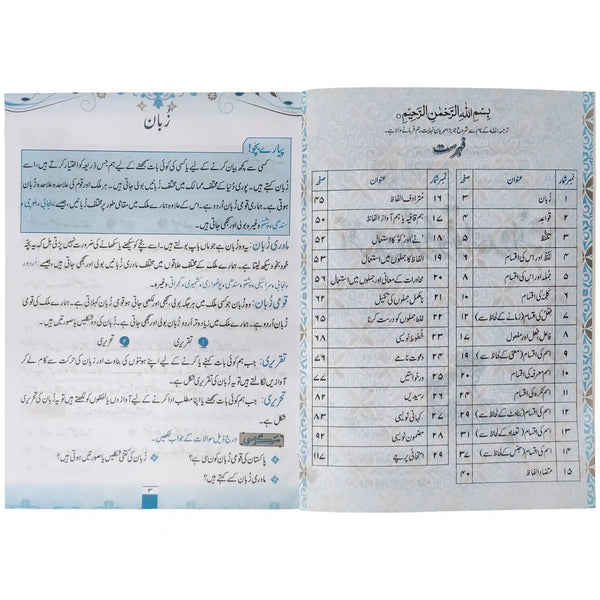 بِسْمِ اللهِ الرَّحْمٰنِ الرَّحِيْمِ
ترجمہ: اللہ کے نام سے شروع جو بڑا مہربان نہایت رحم فرمانے والا ہے۔
فہرست
نمبر شمار عنوان صفحہ نمبر شمار عنوان صفحہ
۱ زبان ۳ ۱۶ مترادف الفاظ ۴۵
۲ قواعد ۴ ۱۷ ہم قافیہ یا ہم آواز الفاظ ۵۰
۳ تلفظ ۵ ۱۸ نے اور کو کا استعمال ۵۲
۴ لفظ اور اس کی اقسام ۶ ۱۹ الفاظ کا جملوں میں استعمال ۵۳
۵ جملہ اور اس کی اقسام ۸ ۲۰ محاورات کے معانی اور جملوں میں استعمال ۵۶
۶ کلمہ کی اقسام ۱۰ ۲۱ نامکمل جملوں کی تکمیل ۶۲
۷ فعل کی اقسام (زمانے کے لحاظ سے) ۱۲ ۲۲ غلط جملوں کو درست کرنا ۶۵
۸ فاعل، فعل اور مفعول ۱۷ ۲۳ خطوط نویسی ۶۸
۹ اسم کی اقسام (معنی کے لحاظ سے) ۱۹ ۲۴ دعوت نامے ۷۶
۱۰ اسم معرفہ کی اقسام ۲۰ ۲۵ درخواستیں ۷۷
۱۱ اسم نکرہ کی اقسام ۲۴ ۲۶ رسیدیں ۸۲
۱۲ اسم کی اقسام (بناوٹ کے لحاظ سے) ۲۹ ۲۷ کہانی نویسی ۸۳
۱۳ اسم کی اقسام (تعداد کے لحاظ سے) ۳۱ ۲۸ مضمون نویسی ۹۲
۱۴ اسم کی اقسام (جنس کے لحاظ سے) ۳۷ ۲۹ امتحانی پرچے ۱۱۷
۱۵ متضاد الفاظ ۴۰
زُبان
پیارے بچّو!
کسی سے کچھ بیان کرنے کے لیے یا کسی کی بات سمجھنے کے لیے ہم جس ذریعہ کو اختیار کرتے ہیں، اسے
زُبان کہتے ہیں۔ پوری دُنیا کے مختلف ممالک میں مختلف زبانیں بولی جاتی ہیں۔ ہر ملک اور قوم کی علاحدہ علاحدہ زبان
ہوتی ہے۔ ہمارے ملک میں مقامی طور پر مختلف زبانیں بولی جاتی ہیں، جیسے: پنجابی، بلوچی،
سندھی، پشتو وغیرہ بولی اور سمجھی جاتی ہیں۔
مادری زُبان: یہ وہ زبان ہے جو ماں باپ بولتے ہیں۔ اسے بچّے کو سیکھنے یا سکھانے کی ضرورت نہیں پڑتی بل کہ بچّہ
خود بخود سیکھ لیتا ہے۔ ہمارے ملک کے مختلف علاقوں میں مختلف زبانیں بولی اور سمجھی جاتی ہیں، جیسے: اُردو،
پنجابی، سرائیکی، پشتو، سندھی، پوٹھواری، کشمیری، گجراتی وغیرہ۔
قومی زُبان: وہ زبان جو کسی ملک میں ہر جگہ بولی اور سمجھی جاتی ہو قومی زُبان کہلاتی ہے۔ ہمارے ملک کی قومی
زبان اُردو ہے۔ ہمارے ملک میں زیادہ تر اُردو زبان بولی اور سمجھی جاتی ہے۔ زبان کی دو شکلیں یا صورتیں ہیں:
۱ تقریری ۲ تحریری
تقریری: جب ہم کوئی بات کہتے یا کرنے کے لیے اپنے ہونٹوں کی بناوٹ اور زبان کی حرکت سے کام لے کر
آوازیں نکالتے ہیں تو یہ زُبان کی تقریری شکل ہے۔
تحریری: جب ہم کوئی بات کہنے یا اپنا مطلب ادا کرنے کے لیے آوازوں یا لفظوں کو لکھتے ہیں تو یہ زبان کی تحریری
شکل ہے۔
سرگرمی درج ذیل سوالات کے جواب لکھیں۔
پاکستان کی قومی زُبان کون سی ہے؟ زُبان کی کتنی شکلیں یا صورتیں ہوتی ہیں؟
مادری زُبان کسے کہتے ہیں؟
۳